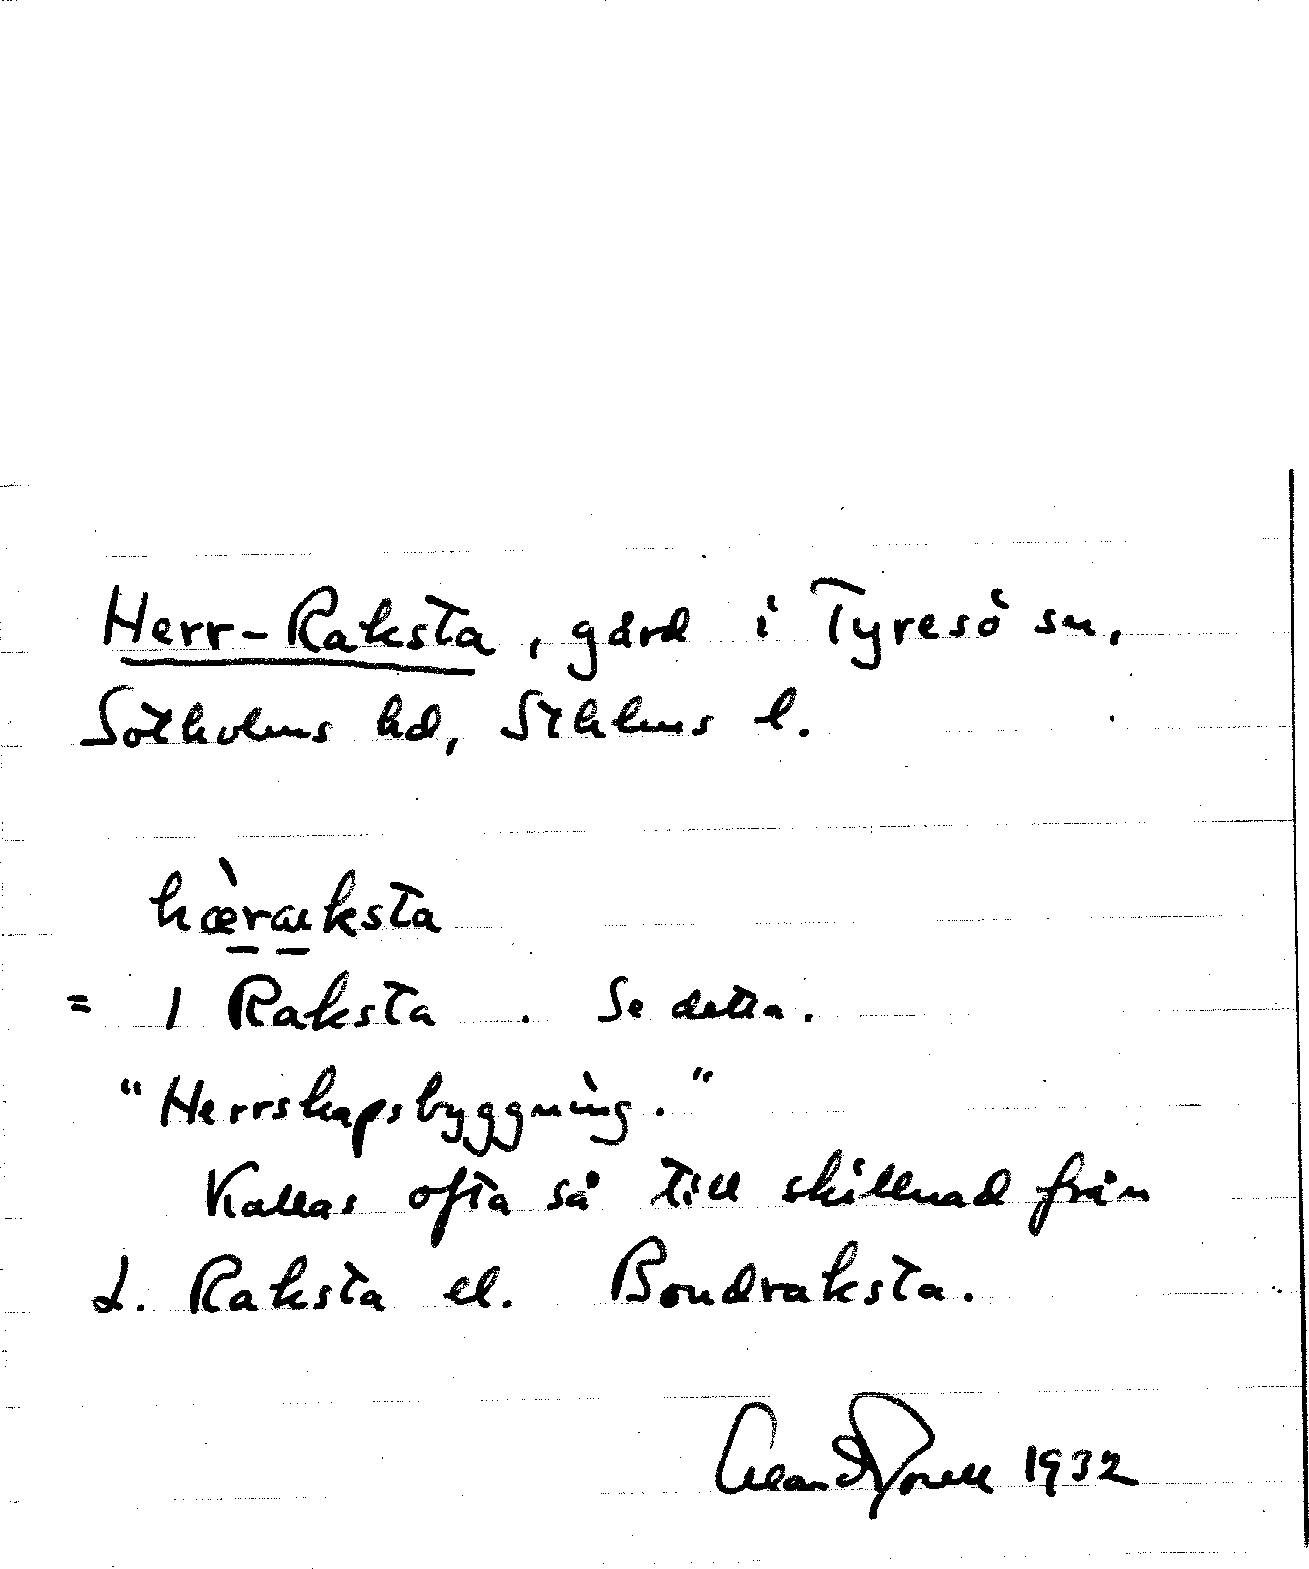 Herr-Raksta, gård i Tyresö sn,
Sotholms hd, Sthlms l.
hæ̀raksta
= 1 Raksta . Se detta.
"Herrskapsbyggning."
Kallas ofta så till skillnad från
L. Raksta el. Bondraksta.
1932